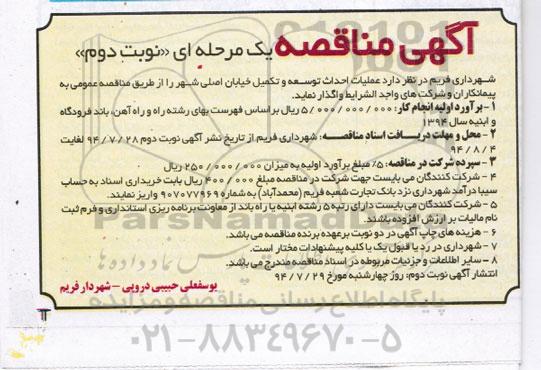 آگهی مناقصه یک مرحله ای «نوبت دوم»
شهرداری فریم در نظر دارد عملیات احداث توسعه و تکمیل خیابان اصلی شهر را از طریق مناقصه عمومی به
پیمانکاران و شرکت های واجد الشرایط واگذار نماید.
۱- برآورد اولیه انجام کار: ۵/۰۰۰/۰۰۰/۰۰۰ ریال بر اساس فهرست بهای رشته راه و راه آهن، باند فرودگاه
و ابنیه سال ۱۳۹۴
۲- محل و مهلت دریافت اسناد مناقصه: شهرداری فریم از تاریخ نشر آگهی نوبت دوم ۹۴/۷/۲۸ لغایت
۹۴/۸/۴
۳- سپرده شرکت در مناقصه: ۵٪ مبلغ برآورد اولیه به میزان ۲۵۰/۰۰۰/۰۰۰ ریال
۴- شرکت کنندگان می بایست جهت شرکت در مناقصه مبلغ ۴۰۰/۰۰۰ ریال بابت خریداری اسناد به حساب
سیبا درآمد شهرداری نزد بانک تجارت شعبه فریم (محمدآباد) به شماره ۹۰۷۰۷۷۹۶۹ واریز نمایند.
۵- شرکت کنندگان می بایست دارای رتبه ۵ رشته ابنیه یا راه باند از معاونت برنامه ریزی استانداری و فرم ثبت
نام مالیات بر ارزش افزوده باشند.
۶- هزینه های چاپ آگهی در دو نوبت بر عهده برنده مناقصه می باشد.
۷- شهرداری در رد یا قبول یک یا کلیه پیشنهادات مختار است.
۸- سایر اطلاعات و جزییات مربوطه در اسناد مناقصه مندرج می باشد.
انتشار آگهی نوبت دوم: روز چهارشنبه مورخ ۹۴/۷/۲۹
یوسفعلی حبیبی دروپی - شهردار فریم
ParsNamadData
پارس نماد داده ها
پایگاه اطلاع رسانی مناقصه و مزایده
۰۲۱-۸۸۳۴۹۶۷۰-۵